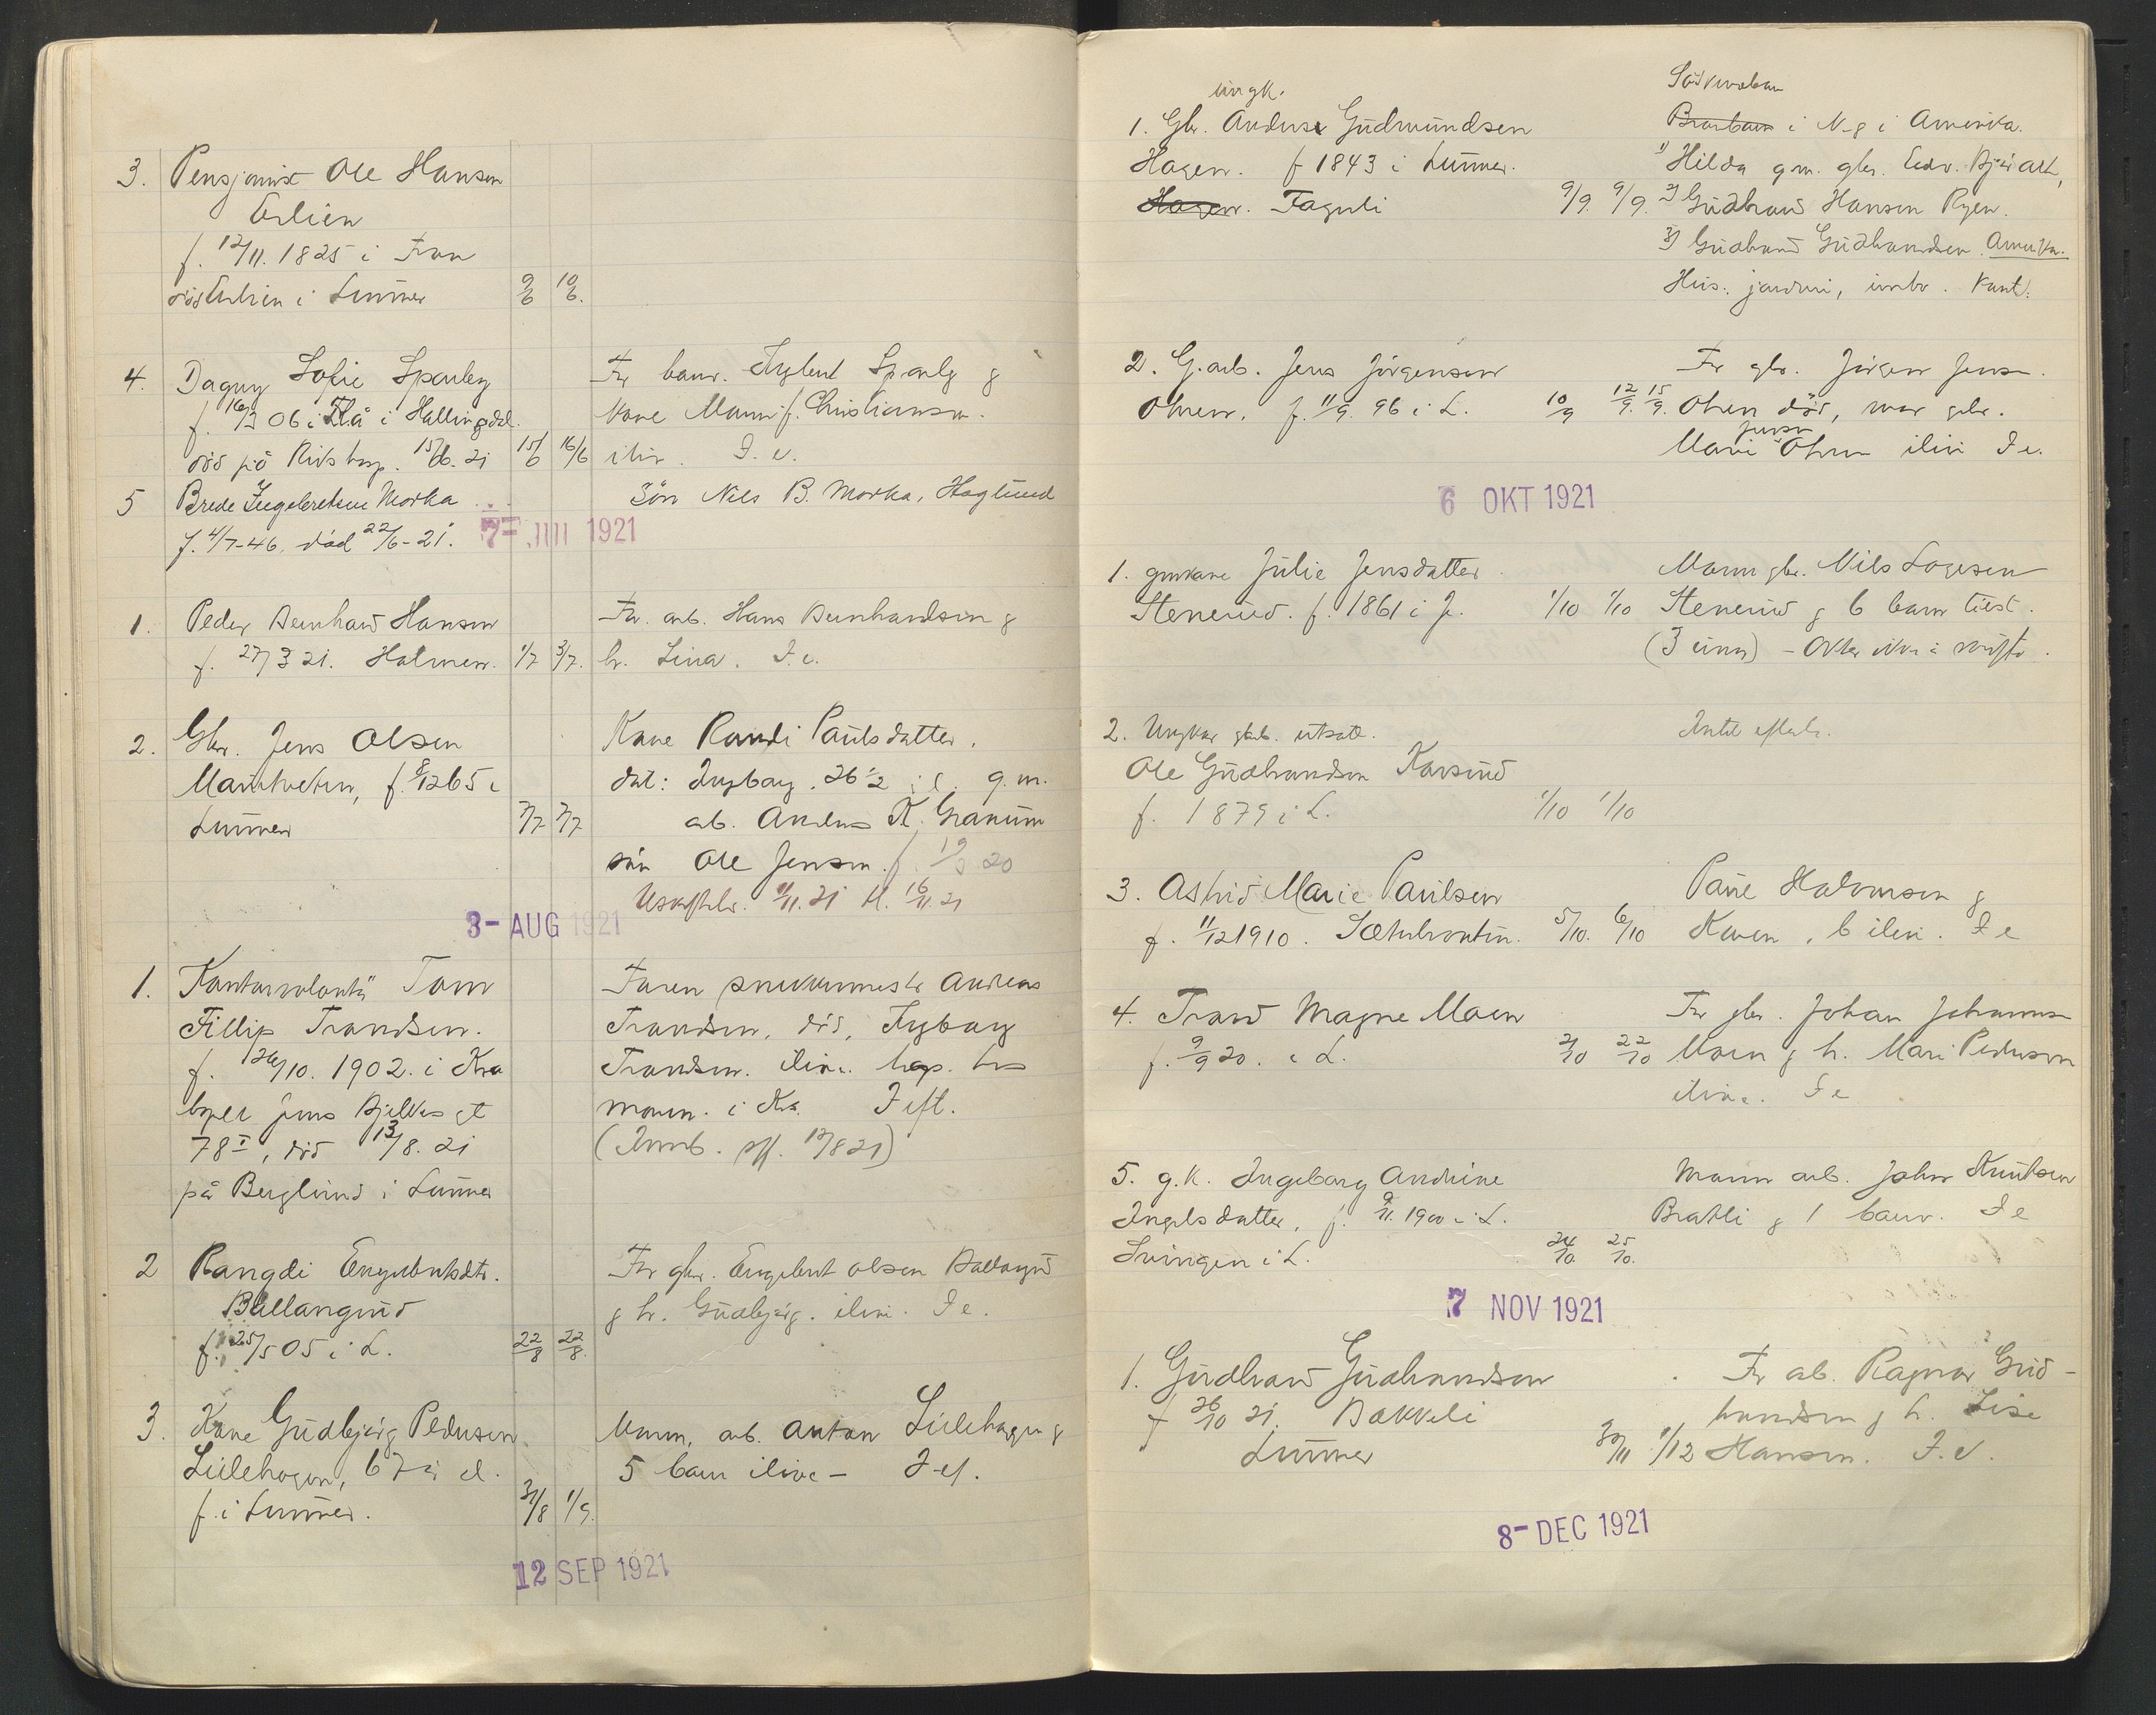 3. Pensjonist Ole Hansen
Erlien
f. 12/11. 1825 i Gran
død Erlien i Lunner 9/6 10/6.
4. Dagny Sofie Sparby
f. 16/3 06 i Flå i Hallingdal.
død på Riks hosp. 15/6. 21 15/6 16/6
Far banv. Engbret Sparby g
Kone Marn f. Christiansen.
ilive. I. e.
5 Brede Ingebretsen Morka
f. 4/7-46. död 22/6-21.
Sön Nils B. Morka, Haglund
7- JUI 1921
1. Peder Bernhard Hansen
f. 27/3 21. Holmen. 1/7 3/7.
Far. arb. Hans Bernhardsen g
h. Lina. I. e.
2. Gbr. Jens Olsen
f. 8/12 65 i
Lunner 7/7 7/7
Kone Randi Paulsdatter.
dat: Ingborg. 26 1/2 g. m.
arb. Anders K. Granum
søn Ole Jensen. f. 20
11/11. 21 16/11. 21
3- AUG 1921
1. Kontorvolontør Tom
Fillip Trandsen.
f. 26/10. 1902. i Kra
bopel Jens Bjelkes gt
78 I, død 13/8. 21
på Berglund i Lunner
Faren Andreas
Trandsen, død, Ingborg
Trandsen. ilive. bop. hos
moren. i Kra. I eft.
2 Rangdi Engebretsdtr.
Ballangrud
f. 25/5 05 i L. 22/8 22/8.
Far gbr. Engebret Olsen Ballangrud
g h. Gudbjørg. ilive. I e.
3. Kone Gudbjørg Pedersen
Lillehagen, 67 år gl.
f. i Lunner. 31/8 1/9.
Mann, arb. Anton Lillehagen g
5 barn ilive - I ef.
12 SEP 1921
ungk.
1. Gbr. Anders Gudmundsen
Hagen. f 1843 i Lunner.
Hagen. Faguli 9/9. 9/9.
Søskenebarn
Brorbarn i N. g i Amerika.
1) Hilda g m. gbr. Edv. Bjerall,
2) Gudbrand Hansen Ryen.
3) Gudbrand Gudbrandsen. Amerika.
Hus: jordeie, innbo. kont:
2. G.arb. Jens Jörgensen
Ohren. f. 11/9. 96 i L. 10/9 12/9. 15/9.
Far gbr. Jörgen Jensen
Ohren død, mor gbr.
Jensen
Marie Ohren ilive I e.
6 OKT 1921
1. gmkone Julie Jensdatter
Stenerud. f. 1861 i J. 1/10 7/10
Mann gbr. Nils Larsen
Stenerud g 6 barn tilst.
(3 umn) -
2. Ungkar utsatt.
Ole Gudbrandsen Karsrud
f. 1879 i L. 1/10 1/10
Intet efterl.
3. Astrid Marie Paulsen
f. 11/12 1910. Sæterbraaten. 5/10. 6/10
Paul Halvorsen g
Karen, b ilive. I e
4. Trand Magne Moen
f. 9/9 20. i L. 2/10 22/10
Far gbr. Johan Johannesen
Moen g h. Mari Pedersen
ilive. I e
5. g.k. Ingeborg Andrine
Engelsdatter, f. 9/11. 1900 i L.
Svingen i L. 24/10. 25/10.
Mann arb. John Knutsen
Bratli g 1 barn. I e
7 NOV 1921
1. Gudbrand Gudbrandsen
f 26/10 21. Bakkeli
Lunner 30/11 1/12
Far arb. Ragnar Gud-
brandsen g h. Lise
Hansen. I. e.
8- DEC 1921